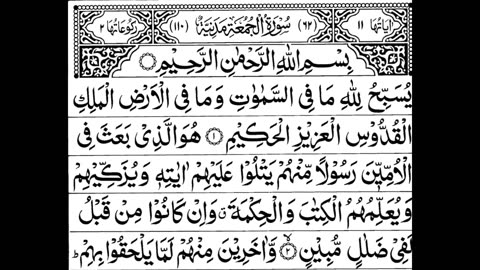 اٰيَاتُهَا ١١ (٦٢) سُوْرَةُ الْجُمُعَةِ مَدَنِيَّةٌ (١١٠) رُكُوْعَاتُهَا ٢
بِسْمِ اللّٰهِ الرَّحْمٰنِ الرَّحِيْمِ ۝
يُسَبِّحُ لِلّٰهِ مَا فِي السَّمٰوٰتِ وَمَا فِي الْاَرْضِ الْمَلِكِ
الْقُدُّوْسِ الْعَزِيْزِ الْحَكِيْمِ ۝١ هُوَ الَّذِيْ بَعَثَ فِي
الْاُمِّيّٖنَ رَسُوْلًا مِّنْهُمْ يَتْلُوْا عَلَيْهِمْ اٰيٰتِهٖ وَيُزَكِّيْهِمْ
وَيُعَلِّمُهُمُ الْكِتٰبَ وَالْحِكْمَةَ ۗ وَاِنْ كَانُوْا مِنْ قَبْلُ
لَفِيْ ضَلٰلٍ مُّبِيْنٍ ۝٢ وَّاٰخَرِيْنَ مِنْهُمْ لَمَّا يَلْحَقُوْا بِهِمْ ؕ